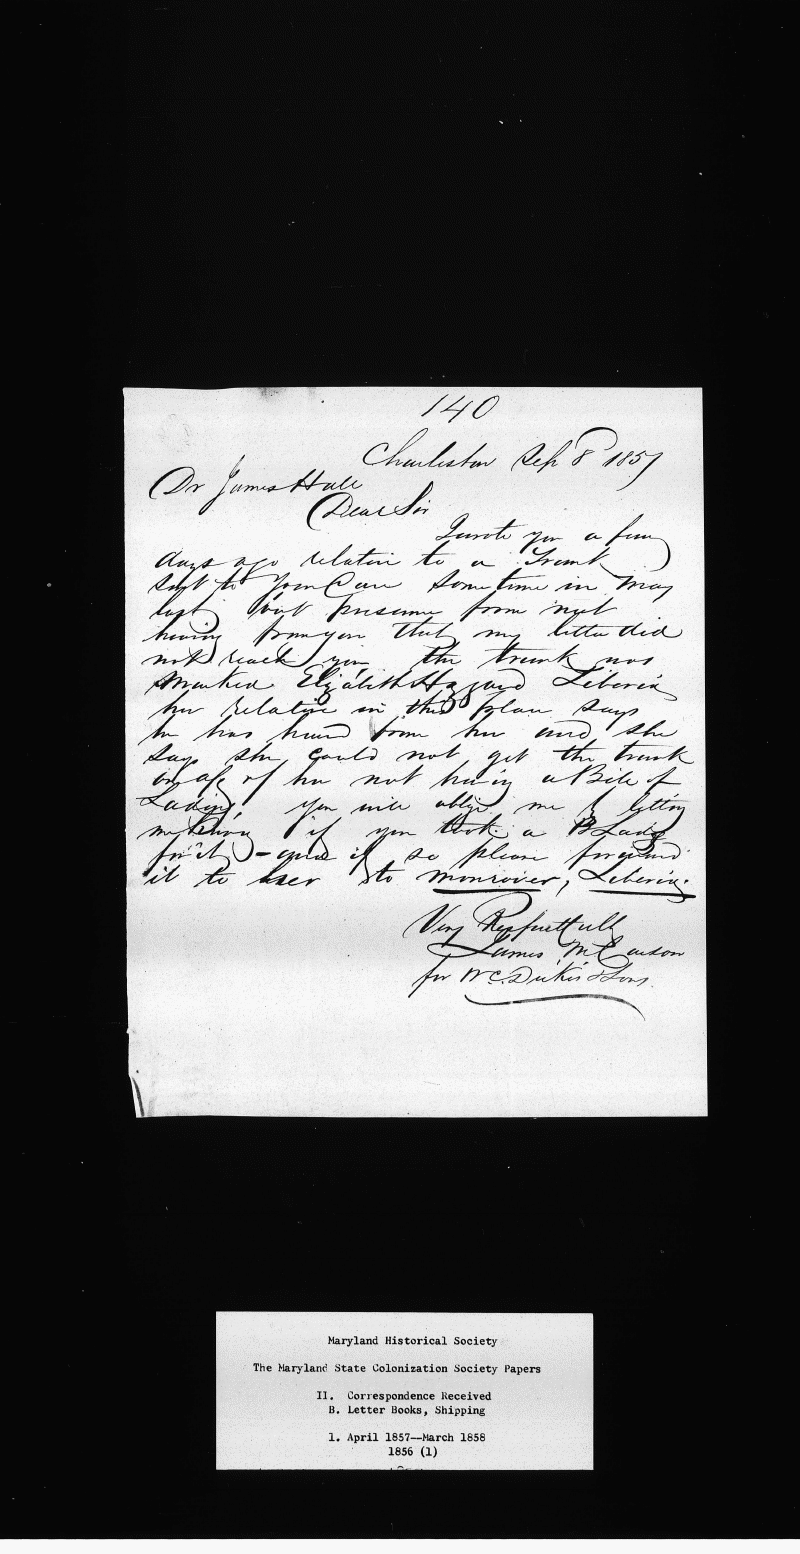 140
Charleston Sep 8 1857
Dr James Hall
Dear Sir
I wrote you a few
days ago relative to a Trunk
sent to Your Care Sometime in May
last but presume from not
hearing from you that my letter did
not reach you the trunk was
Marked Elizabeth Hazzard Liberia
her relative in this place says
he has heard from her and she
says she could not get the trunk
on a/c of her not having a Bill of
Lading you will oblige me by letting
me know if you took a B Lading
for it - and if so please forward
it to her to Monrovier, Liberia.
Very Respectfully
James M
for Wm C. Dukes & Sons.
Maryland Historical Society
The Maryland State Colonization Society Papers
II. Correspondence Received
B. Letter Books, Shipping
1. April 1857--March 1858
1856 (1)